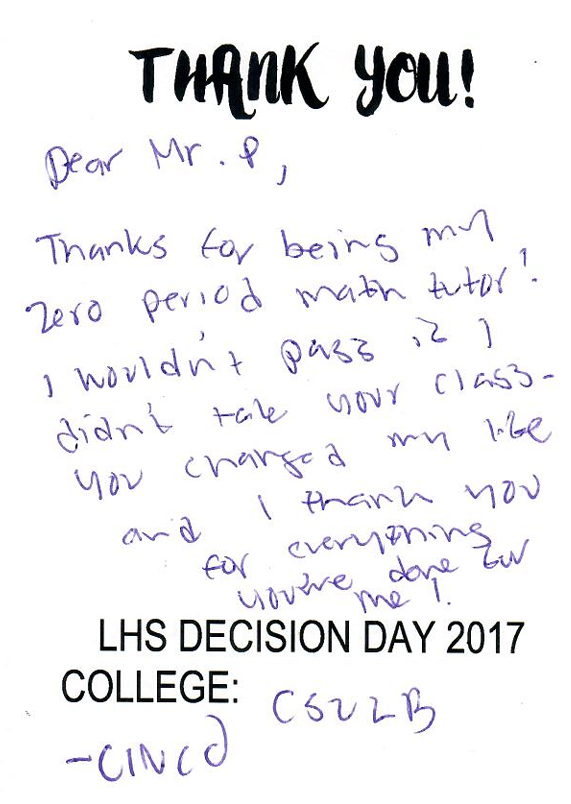 THANK YOU!
Dear Mr. P,
Thanks for being my
zero period math tutor!
I wouldn't pass if I
didn't take your class.
You changed my life
and I thank you
for everything
you've done for
me!
LHS DECISION DAY 2017
COLLEGE: CSULB